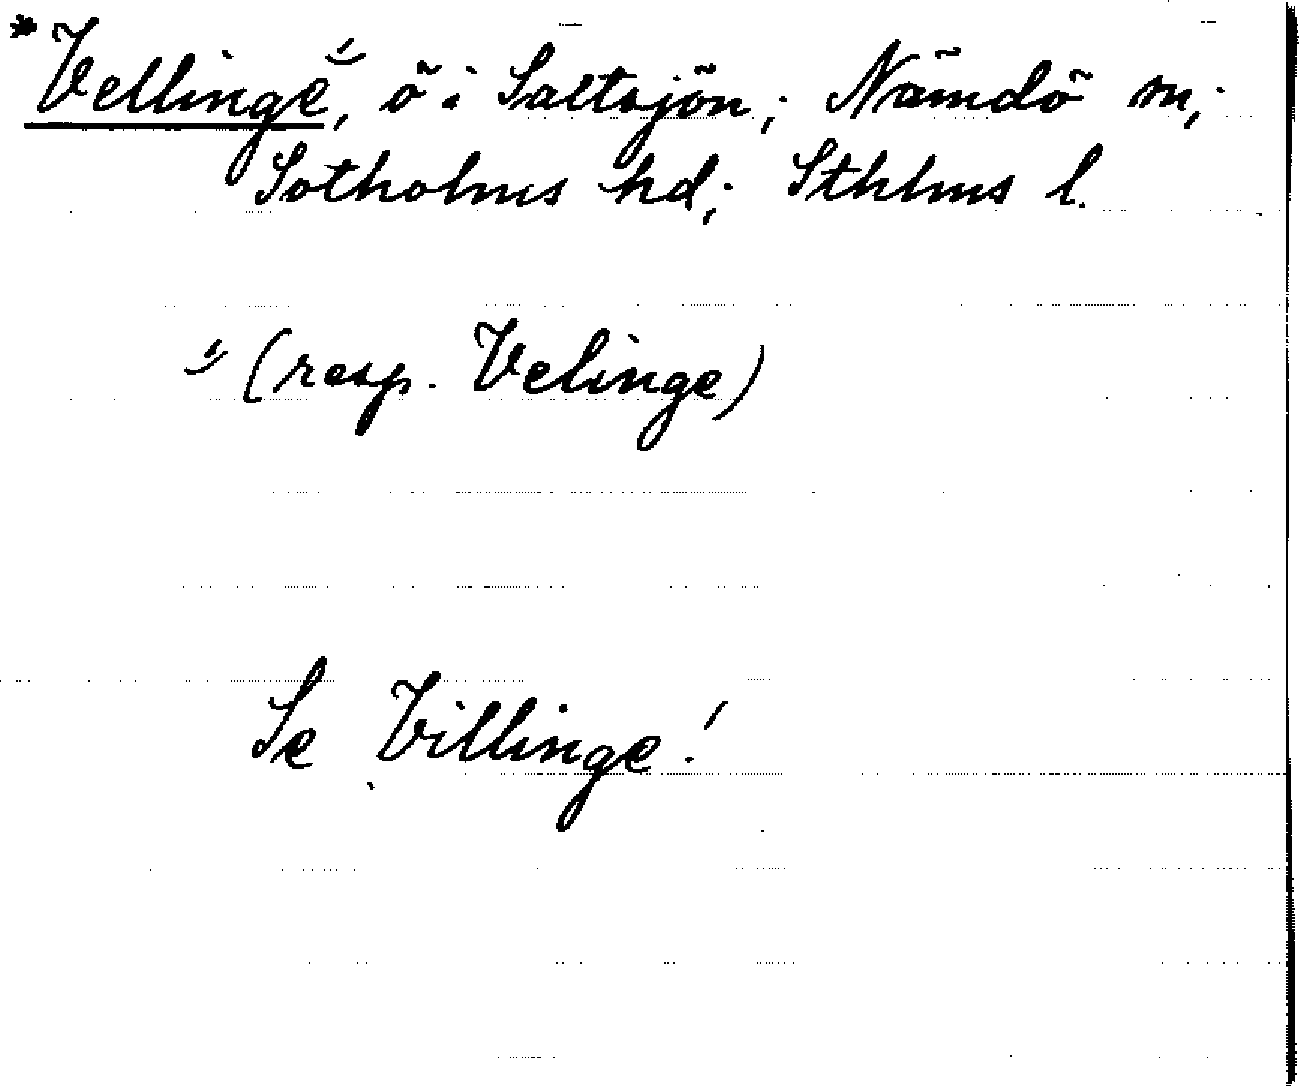 *Vellinge, ö i Saltsjön; Nämdö sn;
Sotholms hd; Sthlms l.
(resp. Velinge)
Se Villinge!